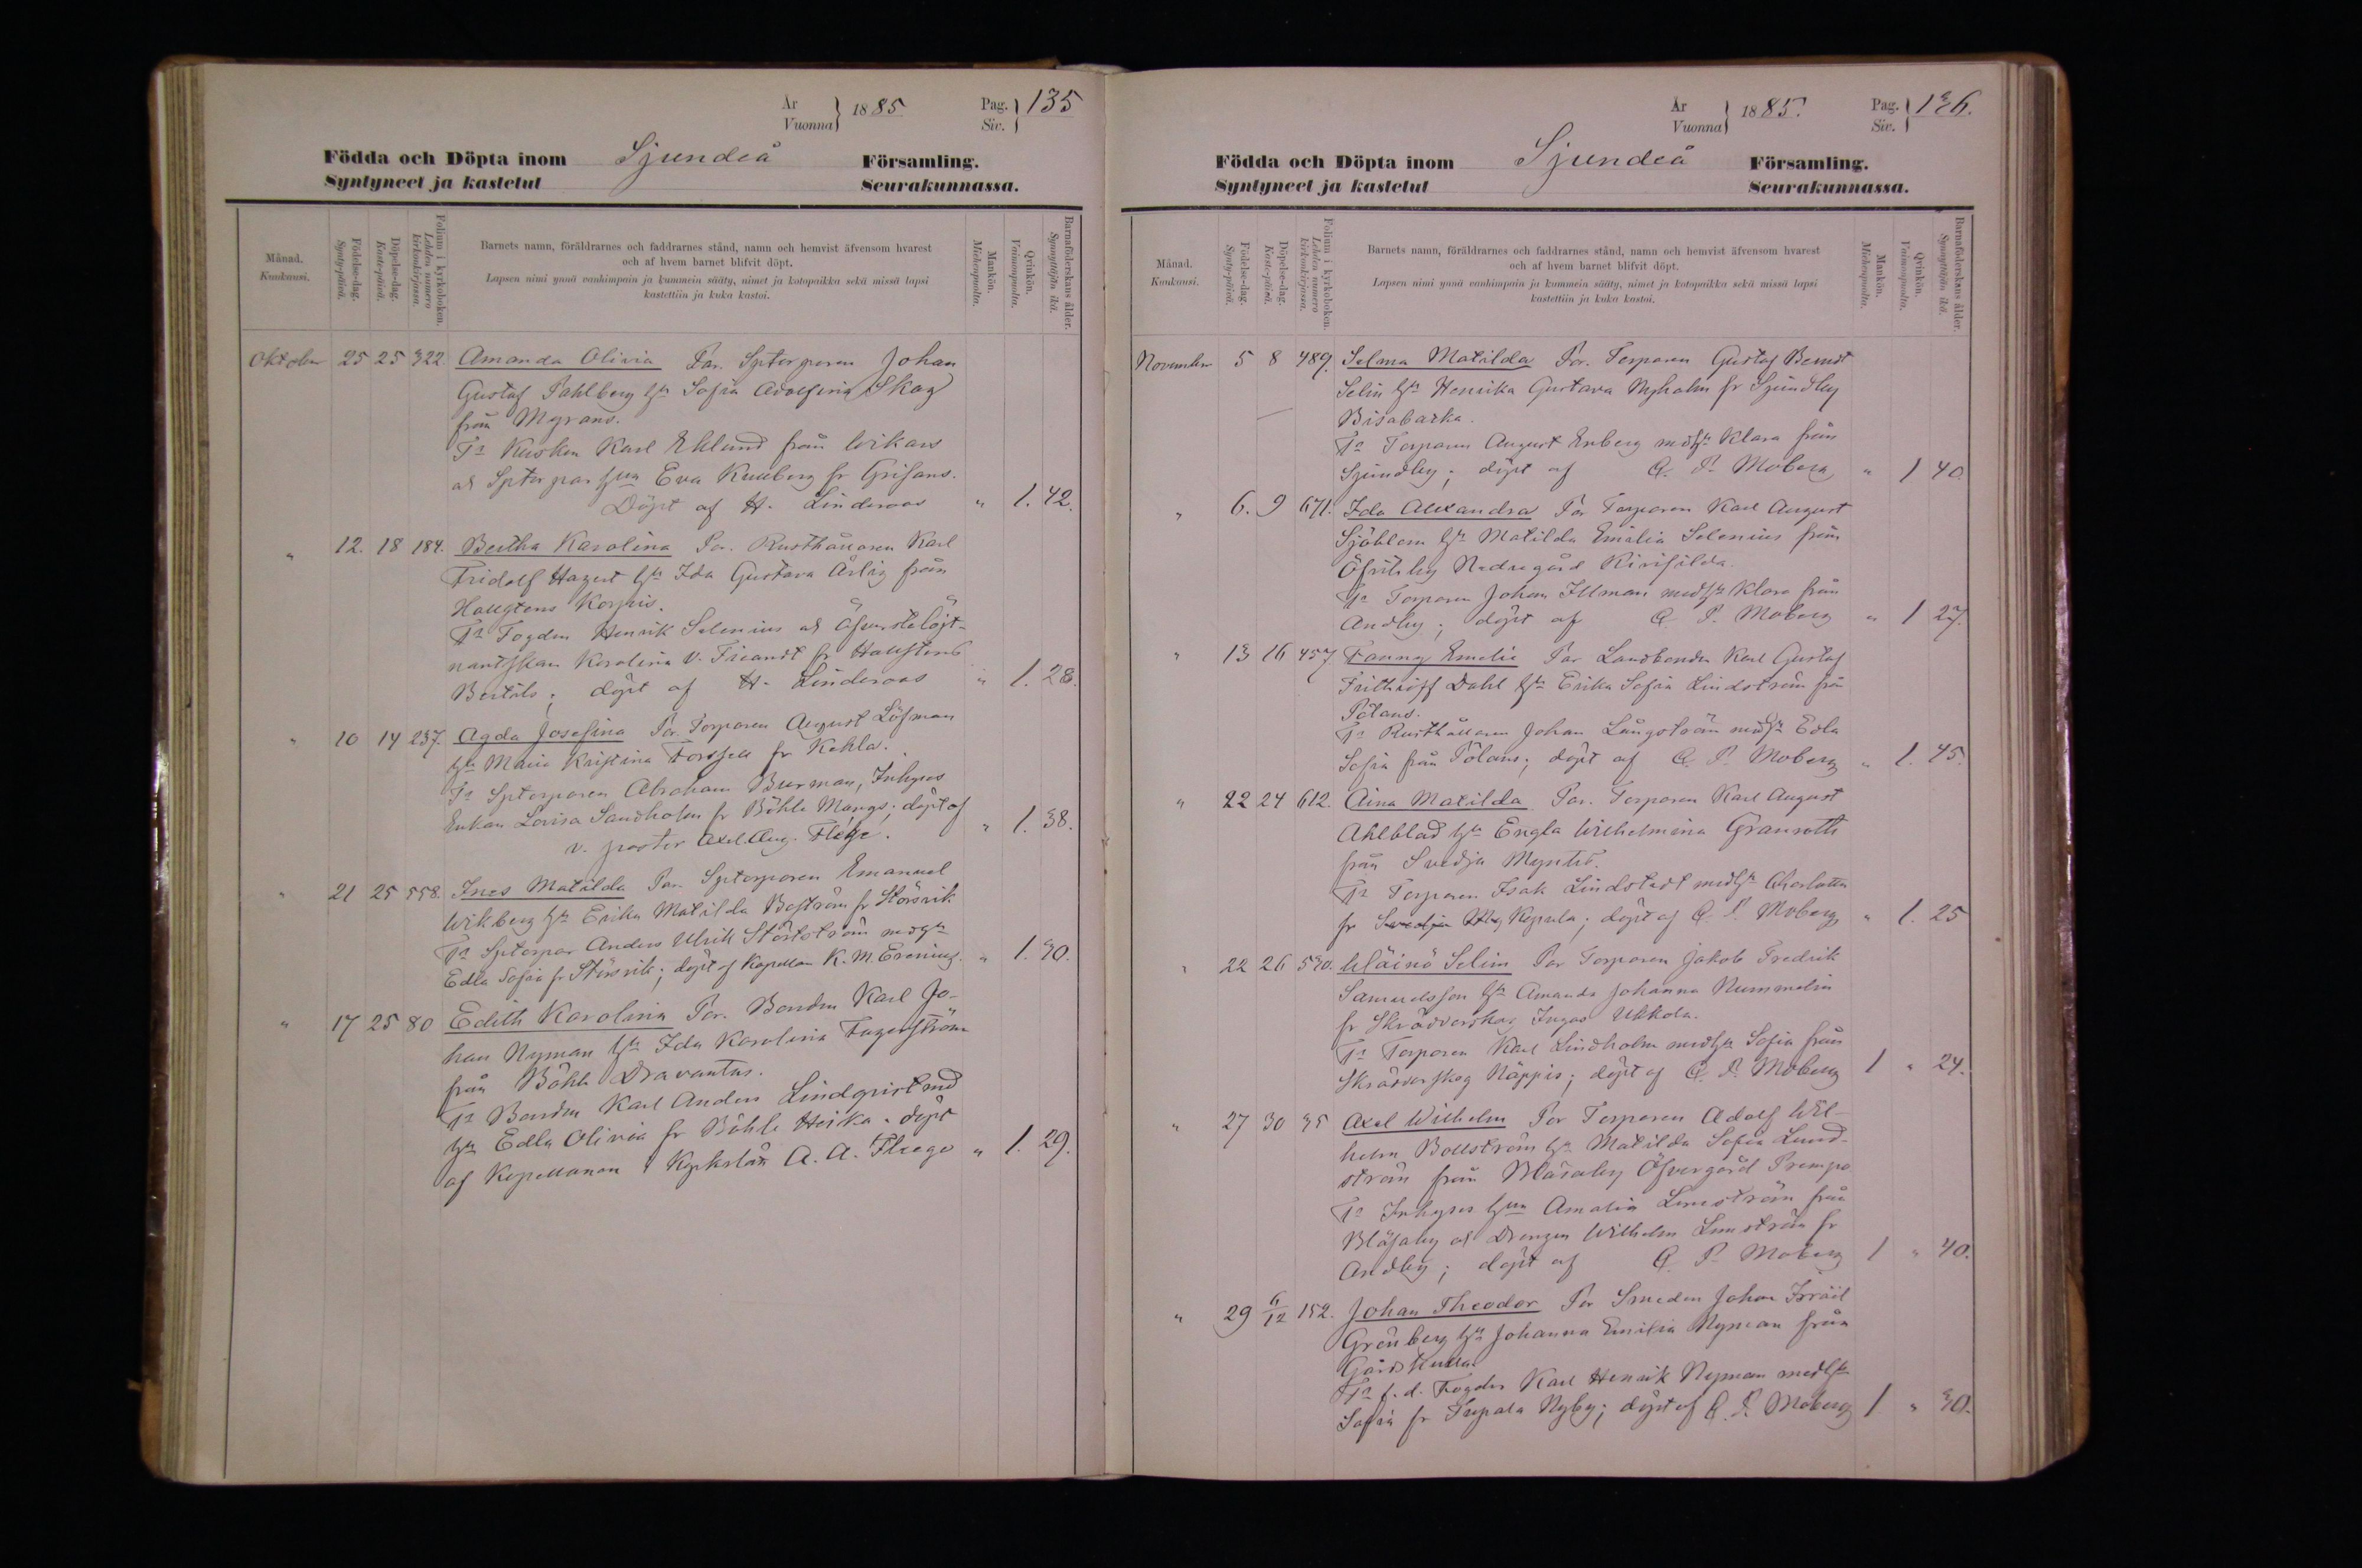 År
Vuonna 1885 Pag. Siv. 135
Födda och Döpta inom Sjundeå Församling.
Syntyneet ja kastetut Seurakunnassa.
Månad. Kuukausi.
Födelse-dag. Synty-päivä.
Döpelse-dag. Kaste-päivä.
Folium i kyrkoboken. Lehden numero kirkonkirjassa.
Barnets namn, föräldrarnes och faddrarnes stånd, namn och hemvist äfvensom hvarest
och af hvem barnet blifvit döpt.
Lapsen nimi ynnä vanhimpain ja kummein sääty, nimet ja kotopaikka sekä missä lapsi
kastettiin ja kuka kastoi.
Mankön. Miehenpuolta.
Qvinkön. Vaimonpuolta.
Barnaföderskans ålder. Synnyttäjän ikä.
Oktober 25 25 322. Amanda Olivia För. Sptorparen Johan
Gustaf Pahlberg hu Sofia Adolfina Skog
från Myrans.
Fr Kusken Karl Eklund från Wikars
och Sptorpar hun Eva fr Grisans.
Döpt af H. Linderoos " 1. 42.
" 12. 18 184. Bertha Karolina För. Rusthållaren Karl
Fridolf Hagert hu Ida Gustava Ärlig från
Korpis.
Fr Fogden Henrik Selenius och Öfverstelöjt-
nantskan Karolina v. Freandt fr
Bertils; döpt af H. Linderoos " 1. 28.
" 10 14 237. Agda Josefina För. Torparen August Löfman
hu Maria Kristina Forssell fr Kehla.
Fr Sptorparen Abraham Burman, Inhyses
Enkan Lovisa Sandholm fr Böhle Mangs; döpt af
v. pastor Axel Aug. Flege. " 1. 38.
" 21 25 558. Ines Matilda För. Sptorparen Emanuel
Wikberg hu Erika Matilda Boström fr Störsvik
Fr Sptorpar Anders Ulrik Störström med hu
Edla Sofia fr Störsvik; döpt af Kapellan K. M. " 1. 30.
" 17 25 80 Edith Karolina För. Bonden Karl Jo-
han Nyman hu Ida Karolina Fagerström
från Böhle Dravantas.
Fr Bonden Karl Anders Lindqvist med
hu Edla Olivia fr Böhle Heika. döpt
af Kapellanen i Kyrkslätt A. A. Flege " 1. 29.
År
Vuonna 1885. Pag. Siv. 136.
Födda och Döpta inom Sjundeå Församling.
Syntyneet ja kastetut Seurakunnassa.
Månad. Kuukausi.
Födelse-dag. Synty-päivä.
Döpelse-dag. Kaste-päivä.
Folium i kyrkoboken. Lehden numero kirkonkirjassa.
Barnets namn, föräldrarnes och faddrarnes stånd, namn och hemvist äfvensom hvarest
och af hvem barnet blifvit döpt.
Lapsen nimi ynnä vanhimpain ja kummein sääty, nimet ja kotopaikka sekä missä lapsi
kastettiin ja kuka kastoi.
Mankön. Miehenpuolta.
Qvinkön. Vaimonpuolta.
Barnaföderskans ålder. Synnyttäjän ikä.
November 5 8 489. Selma Matilda För. Torparen Gustaf Berndt
Selin hu Henrika Gustava Nyholm fr Sjundby
Bisabacka.
Fr Torparen August Enberg med hu Klara från
Sjundby; döpt af C. P. Moberg " 1 40.
" 6. 9 671. Ida Alexandra För Torparen Karl August
Sjöblom hu Matilda Emilia Selenius från
Öfvitsby Nedregård
Fr Torparen Johan Illman med hu Klara från
Andby; döpt af C. P. Moberg " 1 27.
" 13 16 457 Fanny Emelie För Landbonden Karl Gustaf
Frithioff Dahl hu Erika Sofia Lindström från
Pölans.
Fr Rusthållaren Johan Långström med hu Edla
Sofia från Pölans; döpt af C. P. Moberg " 1. 45.
" 22 24 612. Aina Matilda För. Torparen Karl August
Ahlblad hu Engla Wilhelmina Granroth
från Svedja
Fr Torparen Isak Lindstedt med hu Charlotta
fr Kopula; döpt af C. P. Moberg " 1. 25
" 22 26 530. Wäinö Selim För Torparen Jakob Fredrik
Samuelsson hu Amanda Johanna Nummelin
fr Skräddarskog Ingas Ukkola.
Fr Torparen Karl Lindholm med hu Sofia från
Skräddarskog Näppis; döpt af C. P. Moberg 1 " 24.
" 27 30 35 Axel Wilhelm För Torparen Adolf Wil-
helm Bollström hu Matilda Sofia Lund-
ström från Blåsaby Öfvergård Prempo.
Fr Inhyses hun Amalia Lindström från
Blåsaby och Drengen Wilhelm Lindström fr
Andby; döpt af C. P. Moberg 1 " 40.
" 29 6/12 152. Johan Theodor För Smeden Johan Isräel
Grönberg hu Johanna Emilia Nyman från
Gårdskulla.
Fr f. d. Fogden Karl Henrik Nyman med hu
Sofia fr Nyby; döpt af C. P. Moberg 1 " 30.